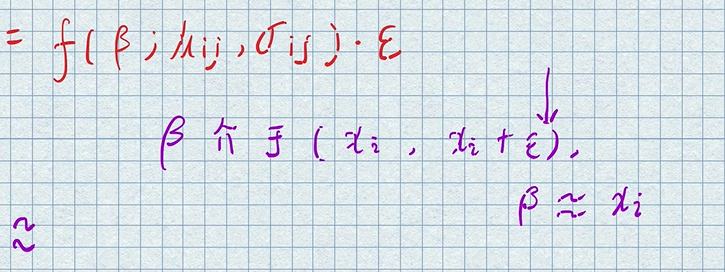 = f(β; μij, σij)·ε
β介于(xi, xi+ε),
β≈xi
≈